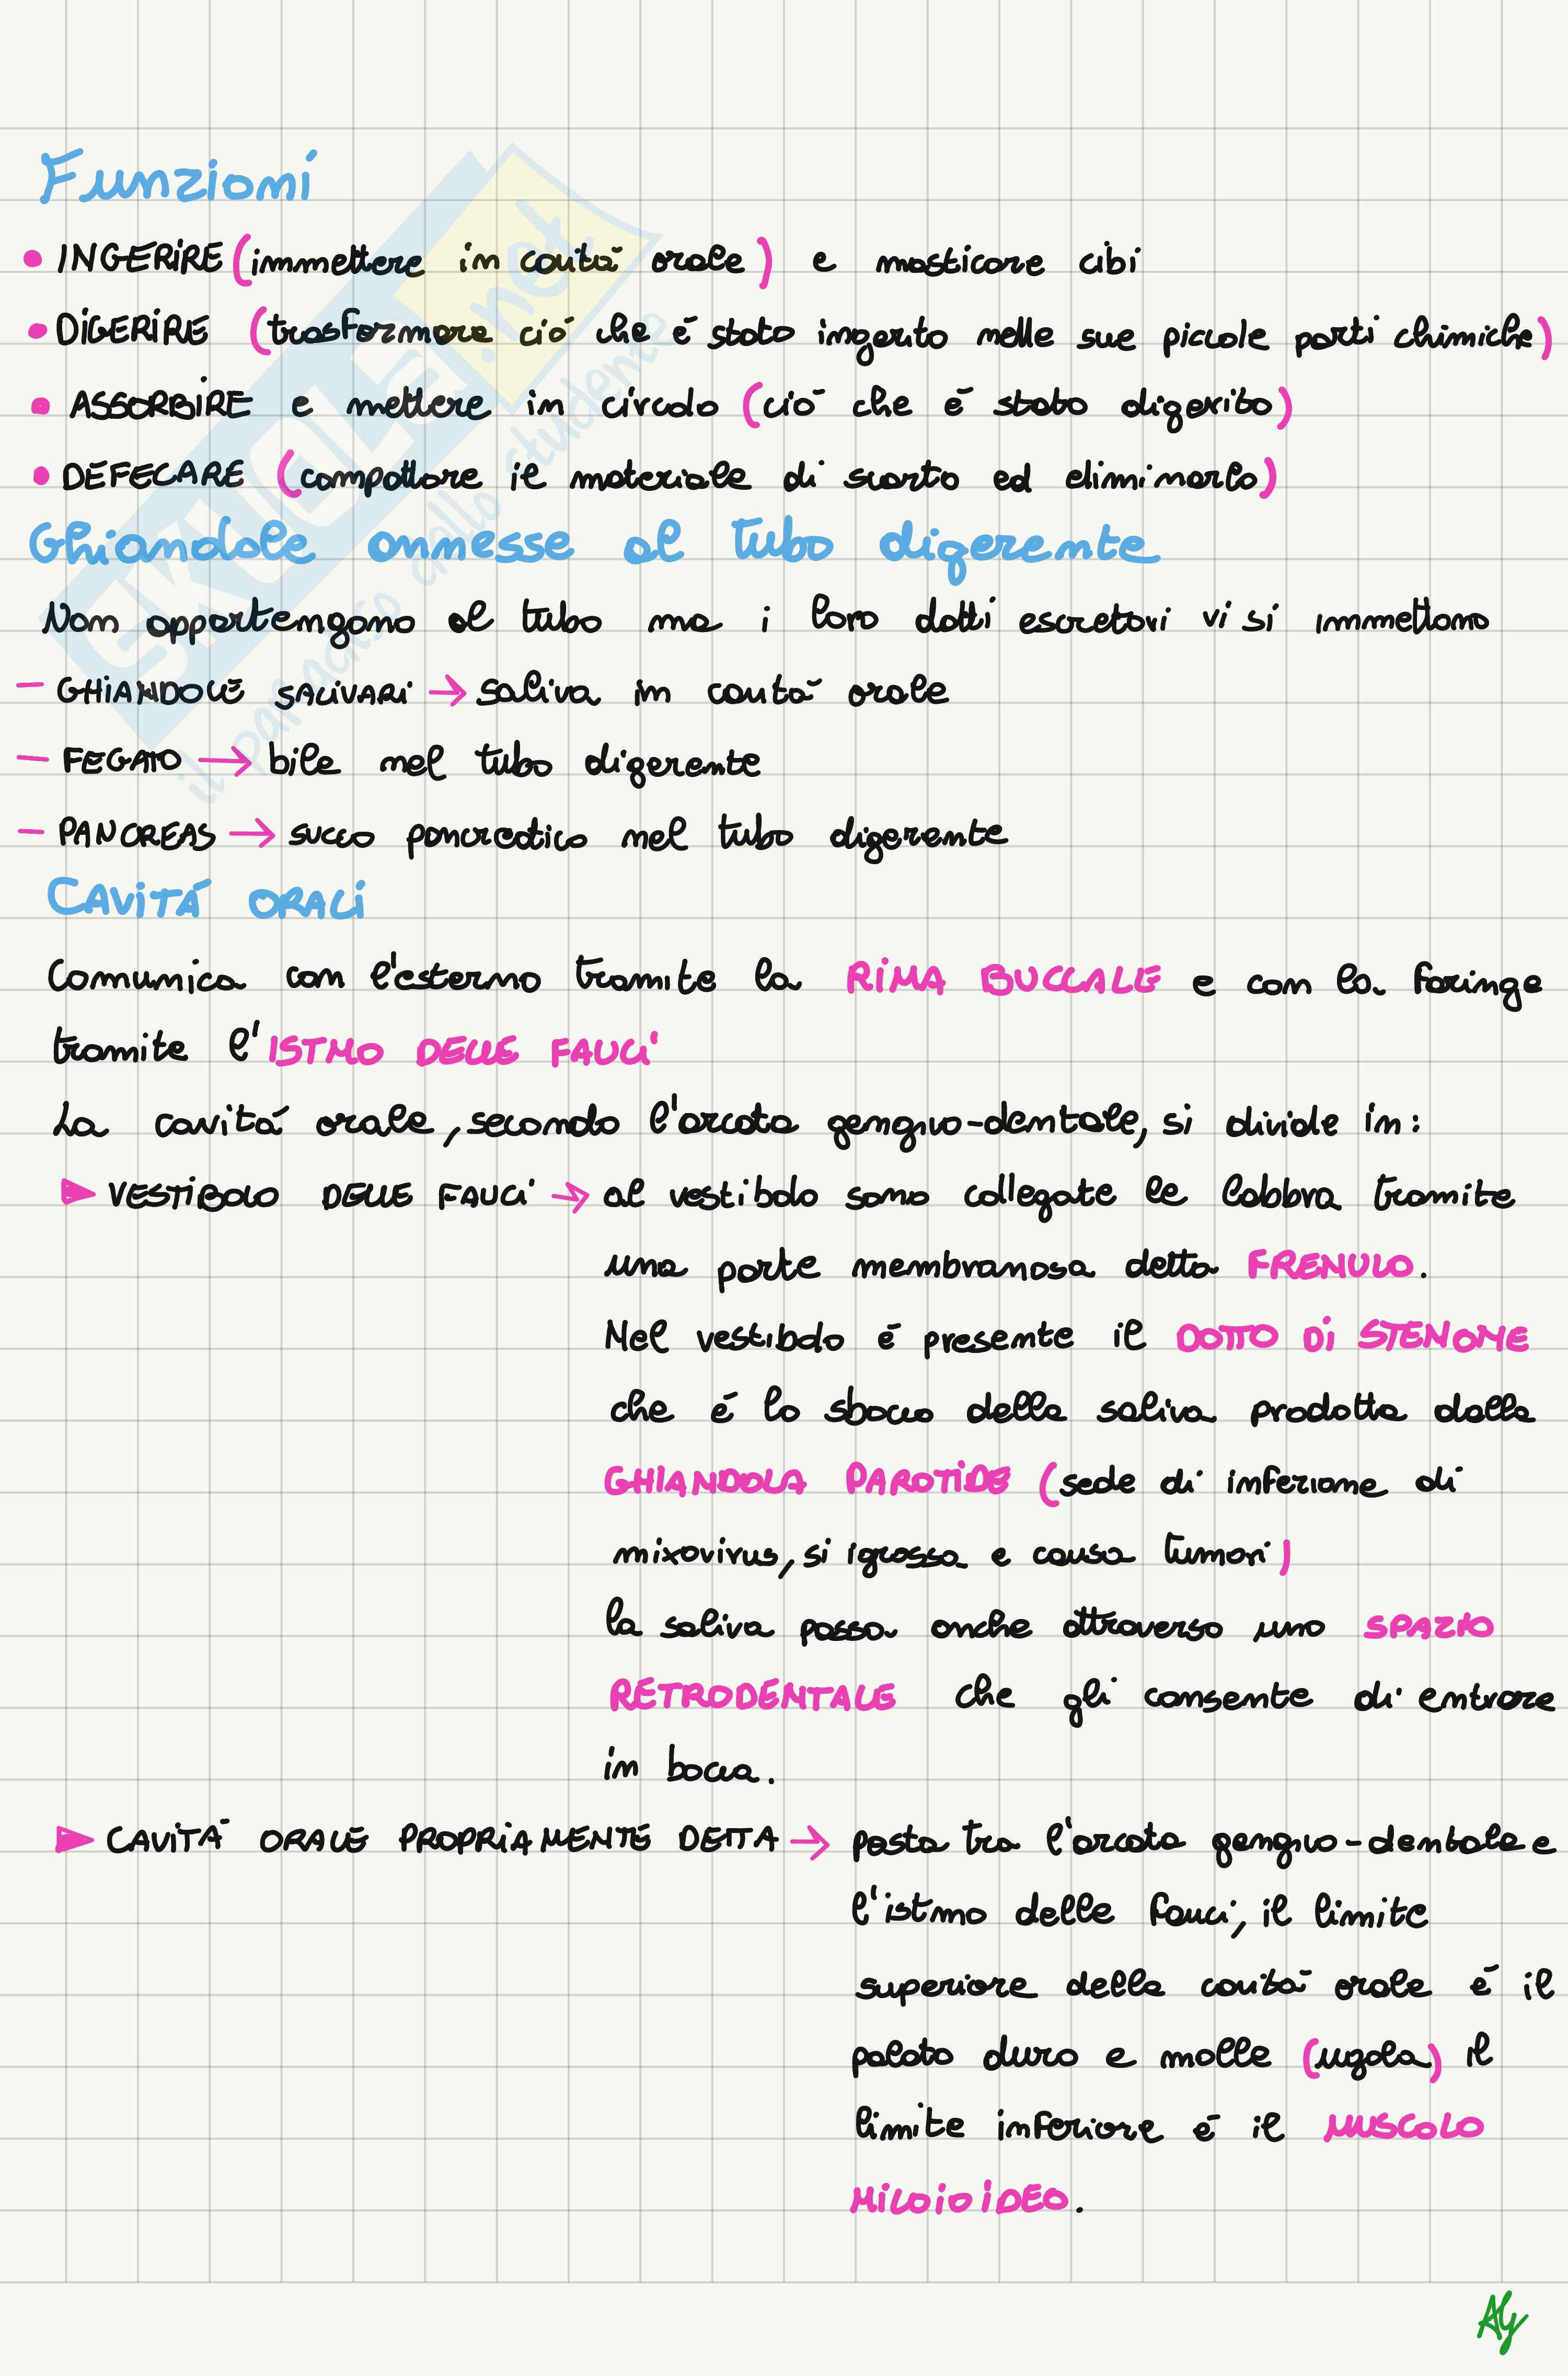 Funzioni
• INGERIRE (immettere in cavità orale) e masticare cibi
• DIGERIRE (trasformare ciò che è stato ingerito nelle sue piccole parti chimiche)
• ASSORBIRE e mettere in circolo (ciò che è stato digerito)
• DEFECARE (compattare il materiale di scarto ed eliminarlo)
Ghiandole annesse al tubo digerente
Non appartengono al tubo ma i loro dotti escretori vi si immettono
- GHIANDOLE SALIVARI → saliva in cavità orale
- FEGATO → bile nel tubo digerente
- PANCREAS → succo pancreatico nel tubo digerente
CAVITÀ ORALI
Comunica con l'esterno tramite la RIMA BUCCALE e con la faringe
tramite l'ISTMO DELLE FAUCI
La cavità orale, secondo l'arcata gengivo-dentale, si divide in:
► VESTIBOLO DELLE FAUCI → al vestibolo sono collegate le labbra tramite
una parte membranosa detta FRENULO.
Nel vestibolo è presente il DOTTO DI STENONE
che è lo sbocco della saliva prodotta dalla
GHIANDOLA PAROTIDE (sede di infezione di
mixovirus, si igrossa e causa tumori)
la saliva passa anche attraverso uno SPAZIO
RETRODENTALE che gli consente di entrare
in bocca.
► CAVITÀ ORALE PROPRIAMENTE DETTA → posta tra l'arcata gengivo-dentale e
l'istmo delle fauci, il limite
superiore della cavità orale è il
palato duro e molle (ugola) il
limite inferiore è il MUSCOLO
MILOIOIDEO.
SKUOLA.net
il paradiso dello studente
Aly